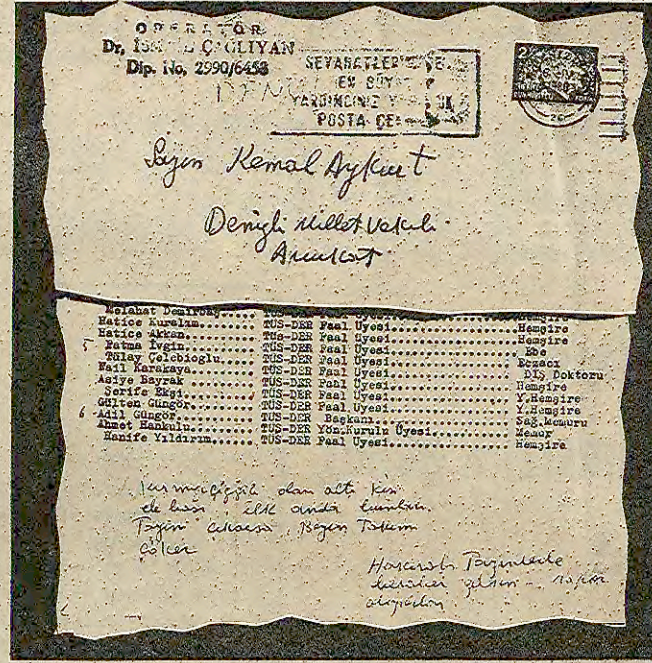 OPERATÖR
Dr. ÇAĞLIYAN
Dip. No, 2990/6453
SEYAHATLER
EN BÜY
YARDIMCINIZ
POSTA ÇE
DENİ
Sayın Kemal Aykurt
Denizli Milletvekili
Avukat
Melahat Demirbaş....... TÜS-DER Faal Üyesi....... Hemşire
Hatice Kuralım....... TÜS-DER Faal Üyesi....... Hemşire
Hatice Akkan....... TÜS-DER Faal Üyesi....... Hemşire
5 Fatma İvgin....... TÜS-DER Faal Üyesi....... Ebe
Tülay Çelebioglu.. TÜS-DER Faal Üyesi....... Eczacı
Nail Karakaya....... TÜS-DER Faal Üyesi....... DIŞ Doktoru
Asiye Bayrak....... TÜS-DER Faal Üyesi....... Hemşire
Şerife Ekşi....... TÜS-DER Faal Üyesi....... Y.Hemşire
Gülten Güngör....... TÜS-DER Faal Üyesi....... Y.Hemşire
6 Adil Güngör....... TÜS-DER Başkanı....... Sağ.Memuru
Ahmet Hankulu....... TÜS-DER Yön.Kurulu Üyesi....... Memur
Hanife Yıldırım....... TÜS-DER Faal Üyesi....... Hemşire
olan altı
ilk anda
Tayini çıkarsa Bizim Takım
çöker
beraber gelsin - rapor